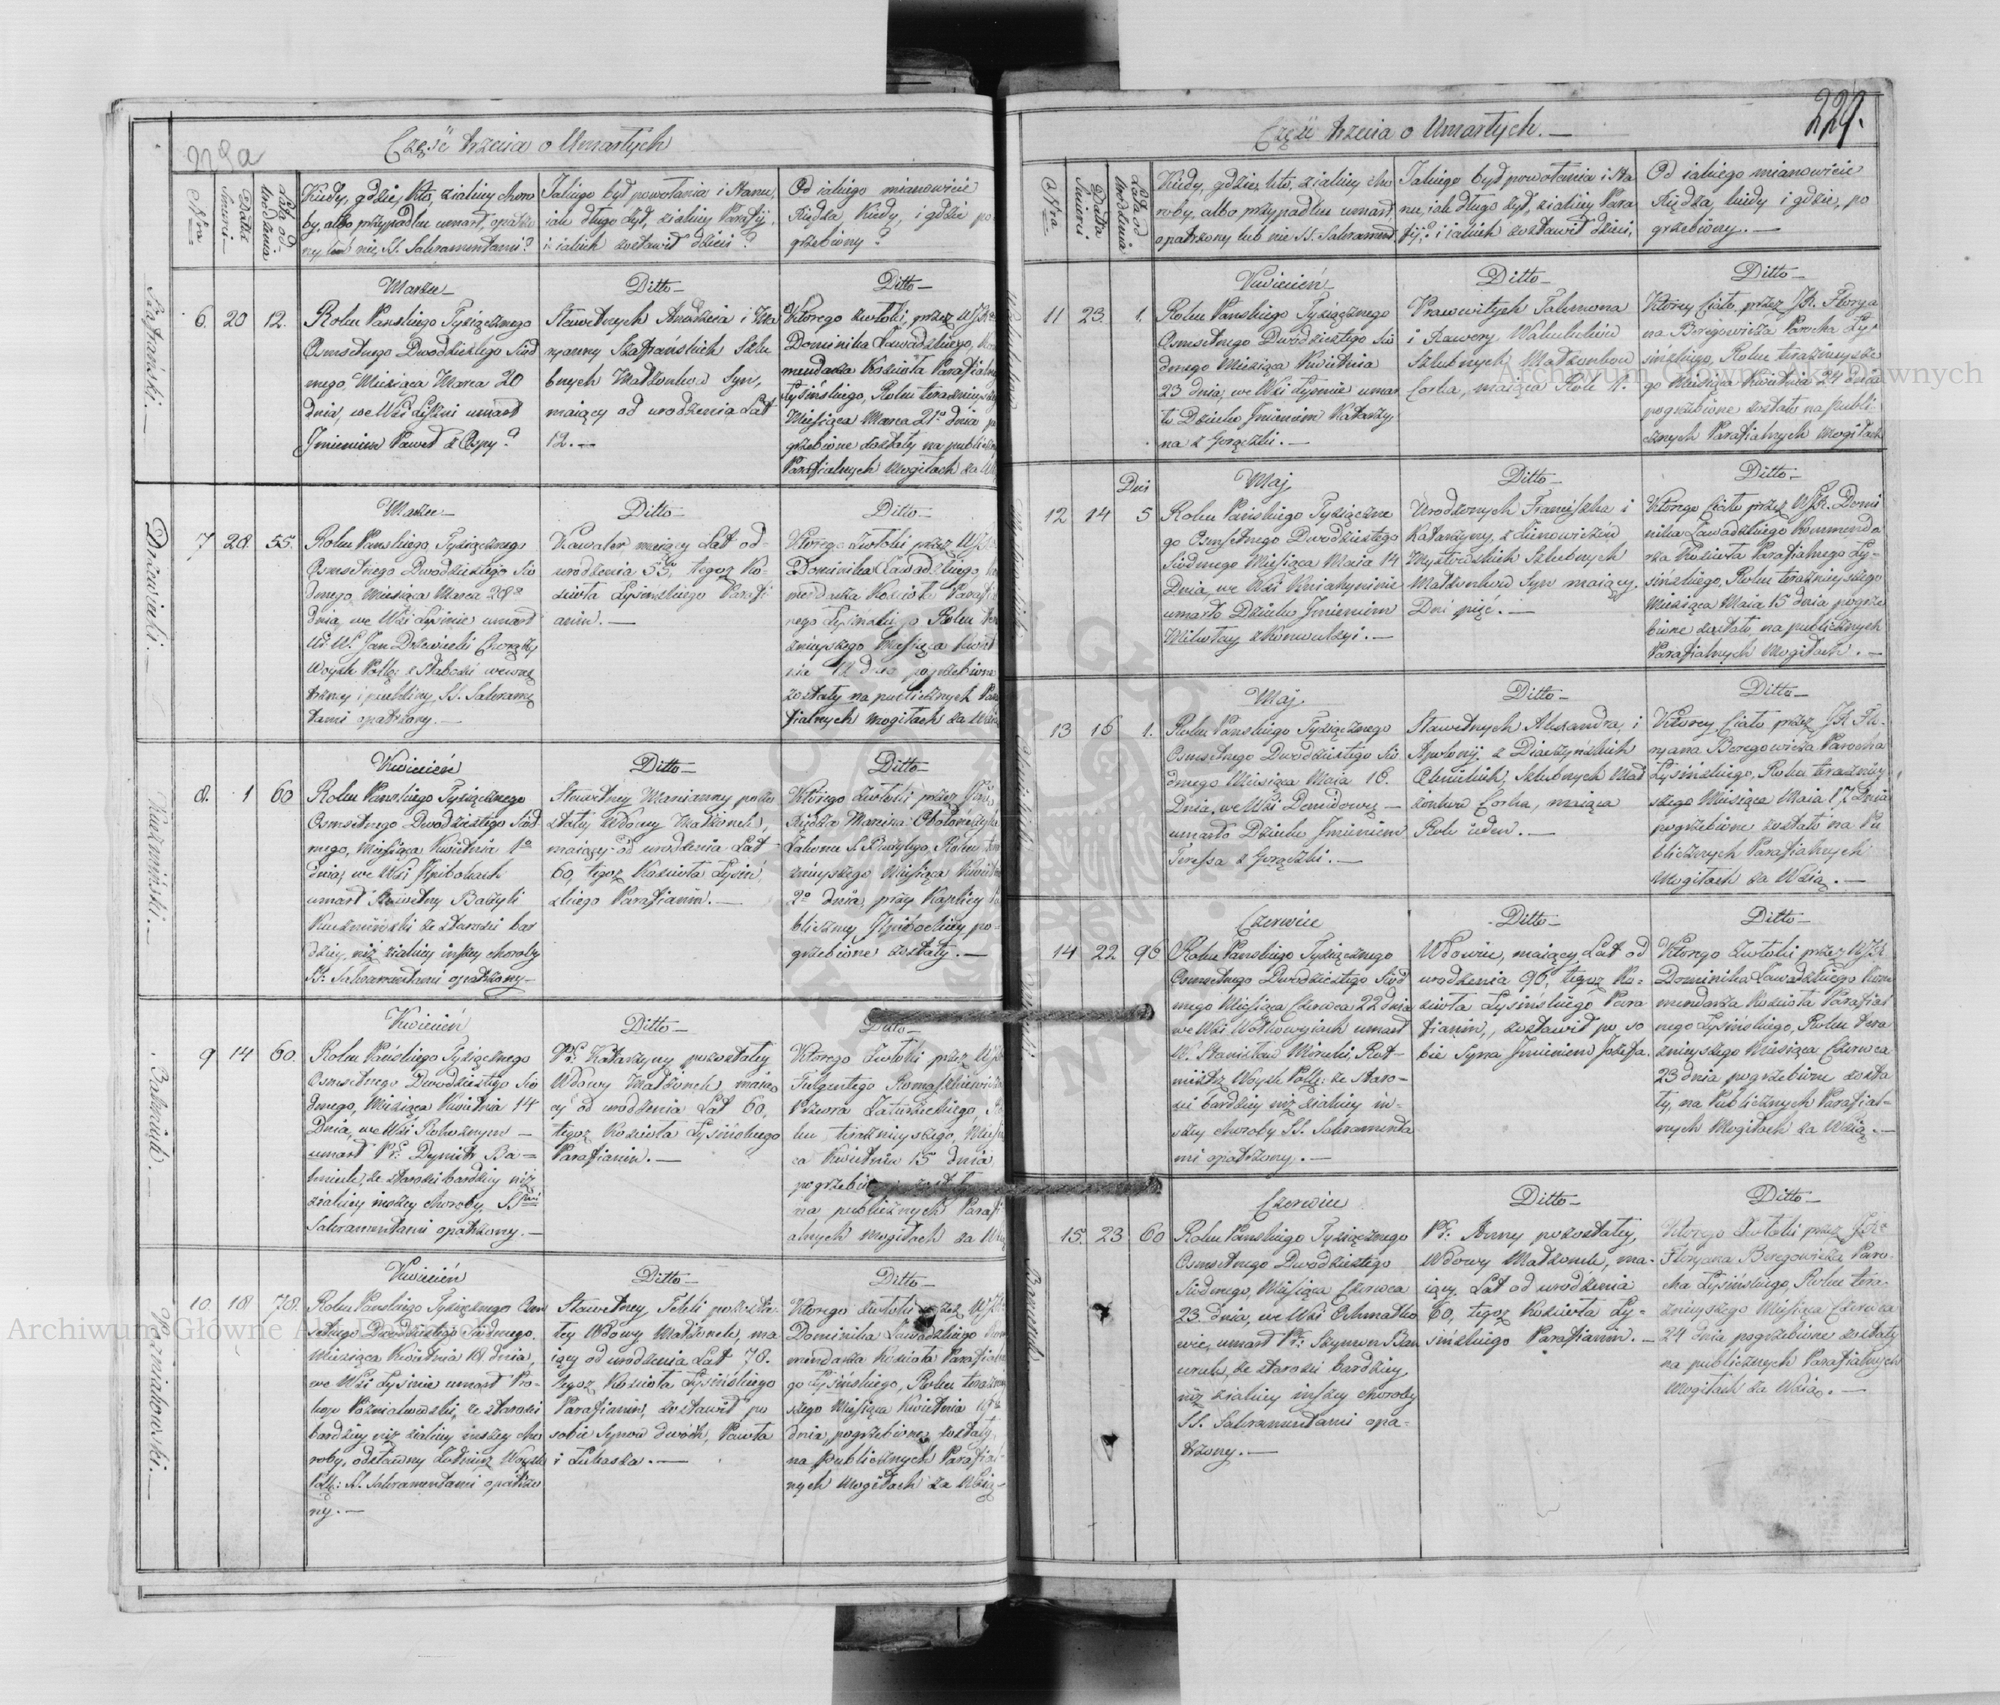 Część trzecia o Umarłych
Nra
Data Śmierci
Lata od Urodzenia
Kiedy, gdzie, kto, z iakiey choro
by, albo przypadku umarł, opatrzo
ny lub nie, SS. Sakramentami?
Jakiego był powołania i stanu,
iak długo żył, z iakiey Parafij,
i iakich zostawił dzieci?
Od iakiego mianowicie
Xiędza, kiedy, i gdzie po
grzebiony?
Szafrański. —
Marzec —
6. 20 12.
Roku Pańskiego Tysiącznego
Osmsetnego Dwódziestego Siód
mego, Miesiąca Marca 20
dnia, we Wsi umarł
Imieniem Paweł z Ospy?
Ditto —
Sławetnych Andrzeia i Ma
ryanny Szafrańskich Szlu
bnych Małżonków Syn,
maiący od urodzenia Lat
12. —
Ditto —
Którego zwłoki, przez
Dominika Zawadzkiego,
mendarza Kościoła Parafialne
Łysińskiego, Roku teraznieysze
Miesiąca Marca 21º dnia po
grzebione zostały na publiczn
Parafialnych Mogiłach za
Drzewiecki. —
Marzec —
7 28 55.
Roku Pańskiego Tysiącznego
Osmsetnego Dwódziestego Sió
dmego, Miesiąca Marca 28º
dnia, we Wsi Łysinie umarł
Jan Drzewiecki Chorąży
Woysk Polk: z Słabości wewnę
trzney i puchliny, SS. Sakramę
tami opatrzony. —
Ditto —
Kawaler, maiący Lat od
urodzenia 55, tegoż Ko
ścioła Łysińskiego Parafi
anin. —
Ditto —
Którego Zwłoki przez
Dominika Zawadzkiego
mendarza Kościoła Parafi
nego Łysińskiego Roku ter
znieyszego Miesiąca Kwiet
nia dnia pogrzebione
zostały na publicznych Para
fialnych mogiłach za Wsią
Kuźmiński. —
Kwiecień
8. 1 60
Roku Pańskiego Tysiącznego
Osmsetnego Dwódziestego Siód
mego, Miesiąca Kwietnia 1º
dnia, we Wsi
umarł Sławetny Bazyli
Kuźmiński ze starości bar
dziey, niż z iakiey inszey choroby
SS. Sakramentami opatrzony —
Ditto —
Sławetney Marianny pozo
stałey Wdowy Małżonek,
maiący od urodzenia Lat
60, tegoż Kościoła Łysiń
skiego Parafianin. —
Ditto —
Którego zwłoki przez
Xiędza Marcina
Zakonu S. Bazylego, Roku
znieyszego Miesiąca Kwiet
2º dnia, przy Kaplicy
bliczney po
grzebione zostały. —
Kwiecień
9 14 60
Roku Pańskiego Tysiącznego
Osmsetnego Dwódziestego Sió
dmego, Miesiąca Kwietnia 14
Dnia, we Wsi —
umarł Dymitr
ze starości bardziey niż
z iakiey inszey choroby, SStmi
Sakramentami opatrzony. —
Ditto —
Katarzyny pozostałey
Wdowy Małżonek, maią
cy od urodzenia Lat 60,
tegoż Kościoła Łysińskiego
Parafianin. —
Ditto —
Którego Zwłoki przez
Fulgentego
Przeora Ro
ku teraznieyszego, Miesią
ca Kwietnia 15 dnia
pogrzebione zostały
na publicznych Parafi
alnych mogiłach za Wsią
Poźniakowski. —
Kwiecień
10. 18 78.
Roku Pańskiego Tysiącznego Osm
setnego Dwódziestego Siódmego,
miesiąca Kwietnia 18 dnia,
we Wsi Łysinie umarł Pro
kop Poźniakowski, ze starości
bardziey niż z iakiey inszey cho
roby, odstawny Żołnierz Woysk
Polk: SS. Sakramentami opatrzo
ny. —
Ditto —
Sławetney Tekli pozosta
łey Wdowy Małżonek, ma
iący od urodzenia Lat 78.
tegoż Kościoła Łysińskiego
Parafianin, zostawił po
sobie Synów dwóch, Pawła
i Łukasza. —
Ditto —
Którego zwłoki przez
Dominika Zawadzkiego Kom
mendarza Kościoła Parafialn
go Łysińskiego, Roku terazniey
szego Miesiąca Kwietnia
dnia, pogrzebione zostały,
na publicznych Parafial
nych Mogiłach za Wsią. —
227.
Część trzecia o Umarłych. —
Nra
Data Śmierci
Lata od Urodzenia
Kiedy, gdzie, kto, z iakiey cho
roby, albo przypadku umarł,
opatrzony lub nie SS. Sakrament
Jakiego był powołania i Sta
nu, iak długo żył, z iakiey Para
fij? i iakich zostawił dzieci,
Od iakiego mianowicie
Xiędza, kiedy i gdzie, po
grzebiony. —
Kwiecień
11 23. 1.
Roku Pańskiego Tysiącznego
Osmsetnego Dwódziestego Sió
dmego Miesiąca Kwietnia
23 dnia, we Wsi Łysinie umar
ło Dziecko Imieniem Katarzy
na z Gorączki. —
Ditto —
Prawowitych
i
Szlubnych Małżonków
Corka, maiąca Rok 1.
Ditto —
Którey Ciało przez JX. Florya
na Beregowicza Parocha Ły
sińskiego, Roku teraznieysze
go Miesiąca Kwietnia 24 dnia
pogrzebione zostało na publi
cznych Parafialnych Mogiłach
Maj
12 14 Dni 5
Roku Pańskiego Tysiączne
go Osmsetnego Dwódziestego
Siódmego Miesiąca Maia 14
Dnia, we Wsi
umarło Dziecko Imieniem
Mikołay z Konwulsyi. —
Ditto —
Urodzonych Franciszka i
Katarzyny z Zienowiczów
Mysłowskich Szlubnych
Małżonków Syn maiący.
Dni pięć. —
Ditto —
Którego Ciało przez Domi
nika Zawadzkiego Kommenda
rza Kościoła Parafialnego Ły
sińskiego, Roku teraznieyszego
Miesiąca Maia 15 dnia pogrze
bione zostało, na publicznych
Parafialnych Mogiłach. —
Maj
13 16 1.
Roku Pańskiego Tysiącznego
Osmsetnego Dwódziestego Sió
dmego Miesiąca Maia 16.
Dnia, we Wsi —
umarło Dziecko Imieniem
Teressa z Gorączki. —
Ditto —
Sławetnych Alexandra, i
Apolonij z
Szlubnych Mał
żonków Corka, maiąca
Rok ieden. —
Ditto —
Którey Ciało przez JX Flo
ryana Beregowicza Parocha
Łysińskiego, Roku teraznieỹ
szego Miesiąca Maia 17 Dnia
pogrzebione zostało na Pu
blicznych Parafialnych
Mogiłach za Wsią. —
Czerwiec
14 22 96
Roku Pańskiego Tysiącznego
Osmsetnego Dwódziestego Siód
mego Miesiąca Czerwca 22 dnia
we Wsi umarł
W. Stanisław Rot
mistrz Woysk Polk: ze staro
ści bardziey niż z iakiey in
szey choroby SS. Sakramenta
mi opatrzony. —
Ditto —
Wdowiec, maiący Lat od
urodzenia 96, tegoż Ko
ścioła Łysińskiego Para
fianin, zostawił po so
bie Syna Imieniem Józefa.
Ditto —
Którego Zwłoki przez
Dominika Zawadzkiego Kom
mendarza Kościoła Parafial
nego Łysińskiego, Roku tera
znieyszego Miesiąca Czerwca
23 dnia pogrzebione zosta
ły, na Publicznych Parafial
nych Mogiłach za Wsią. —
Czerwiec
15. 23 60
Roku Pańskiego Tysiącznego
Osmsetnego Dwódziestego
Siódmego, Miesiąca Czerwca
23 dnia, we Wsi
umarł Szymon
ze starości bardziey,
niż z iakiey inszey choroby
SS. Sakramentami opa
trzony. —
Ditto —
Anny pozostałey,
Wdowy Małżonek, ma
iący Lat od urodzenia
60, tegoż Kościoła Ły
sińskiego Parafianin. —
Ditto —
Którego Zwłoki przez JX
Floryana Beregowicza Paro
cha Łysińskiego, Roku tera
znieyszego Miesiąca Czerwca
24 dnia pogrzebione zostały
na publicznych Parafialnych
Mogiłach za Wsią. —
Archiwum Główne Akt Dawnych
Archiwum Główne Akt Dawnych